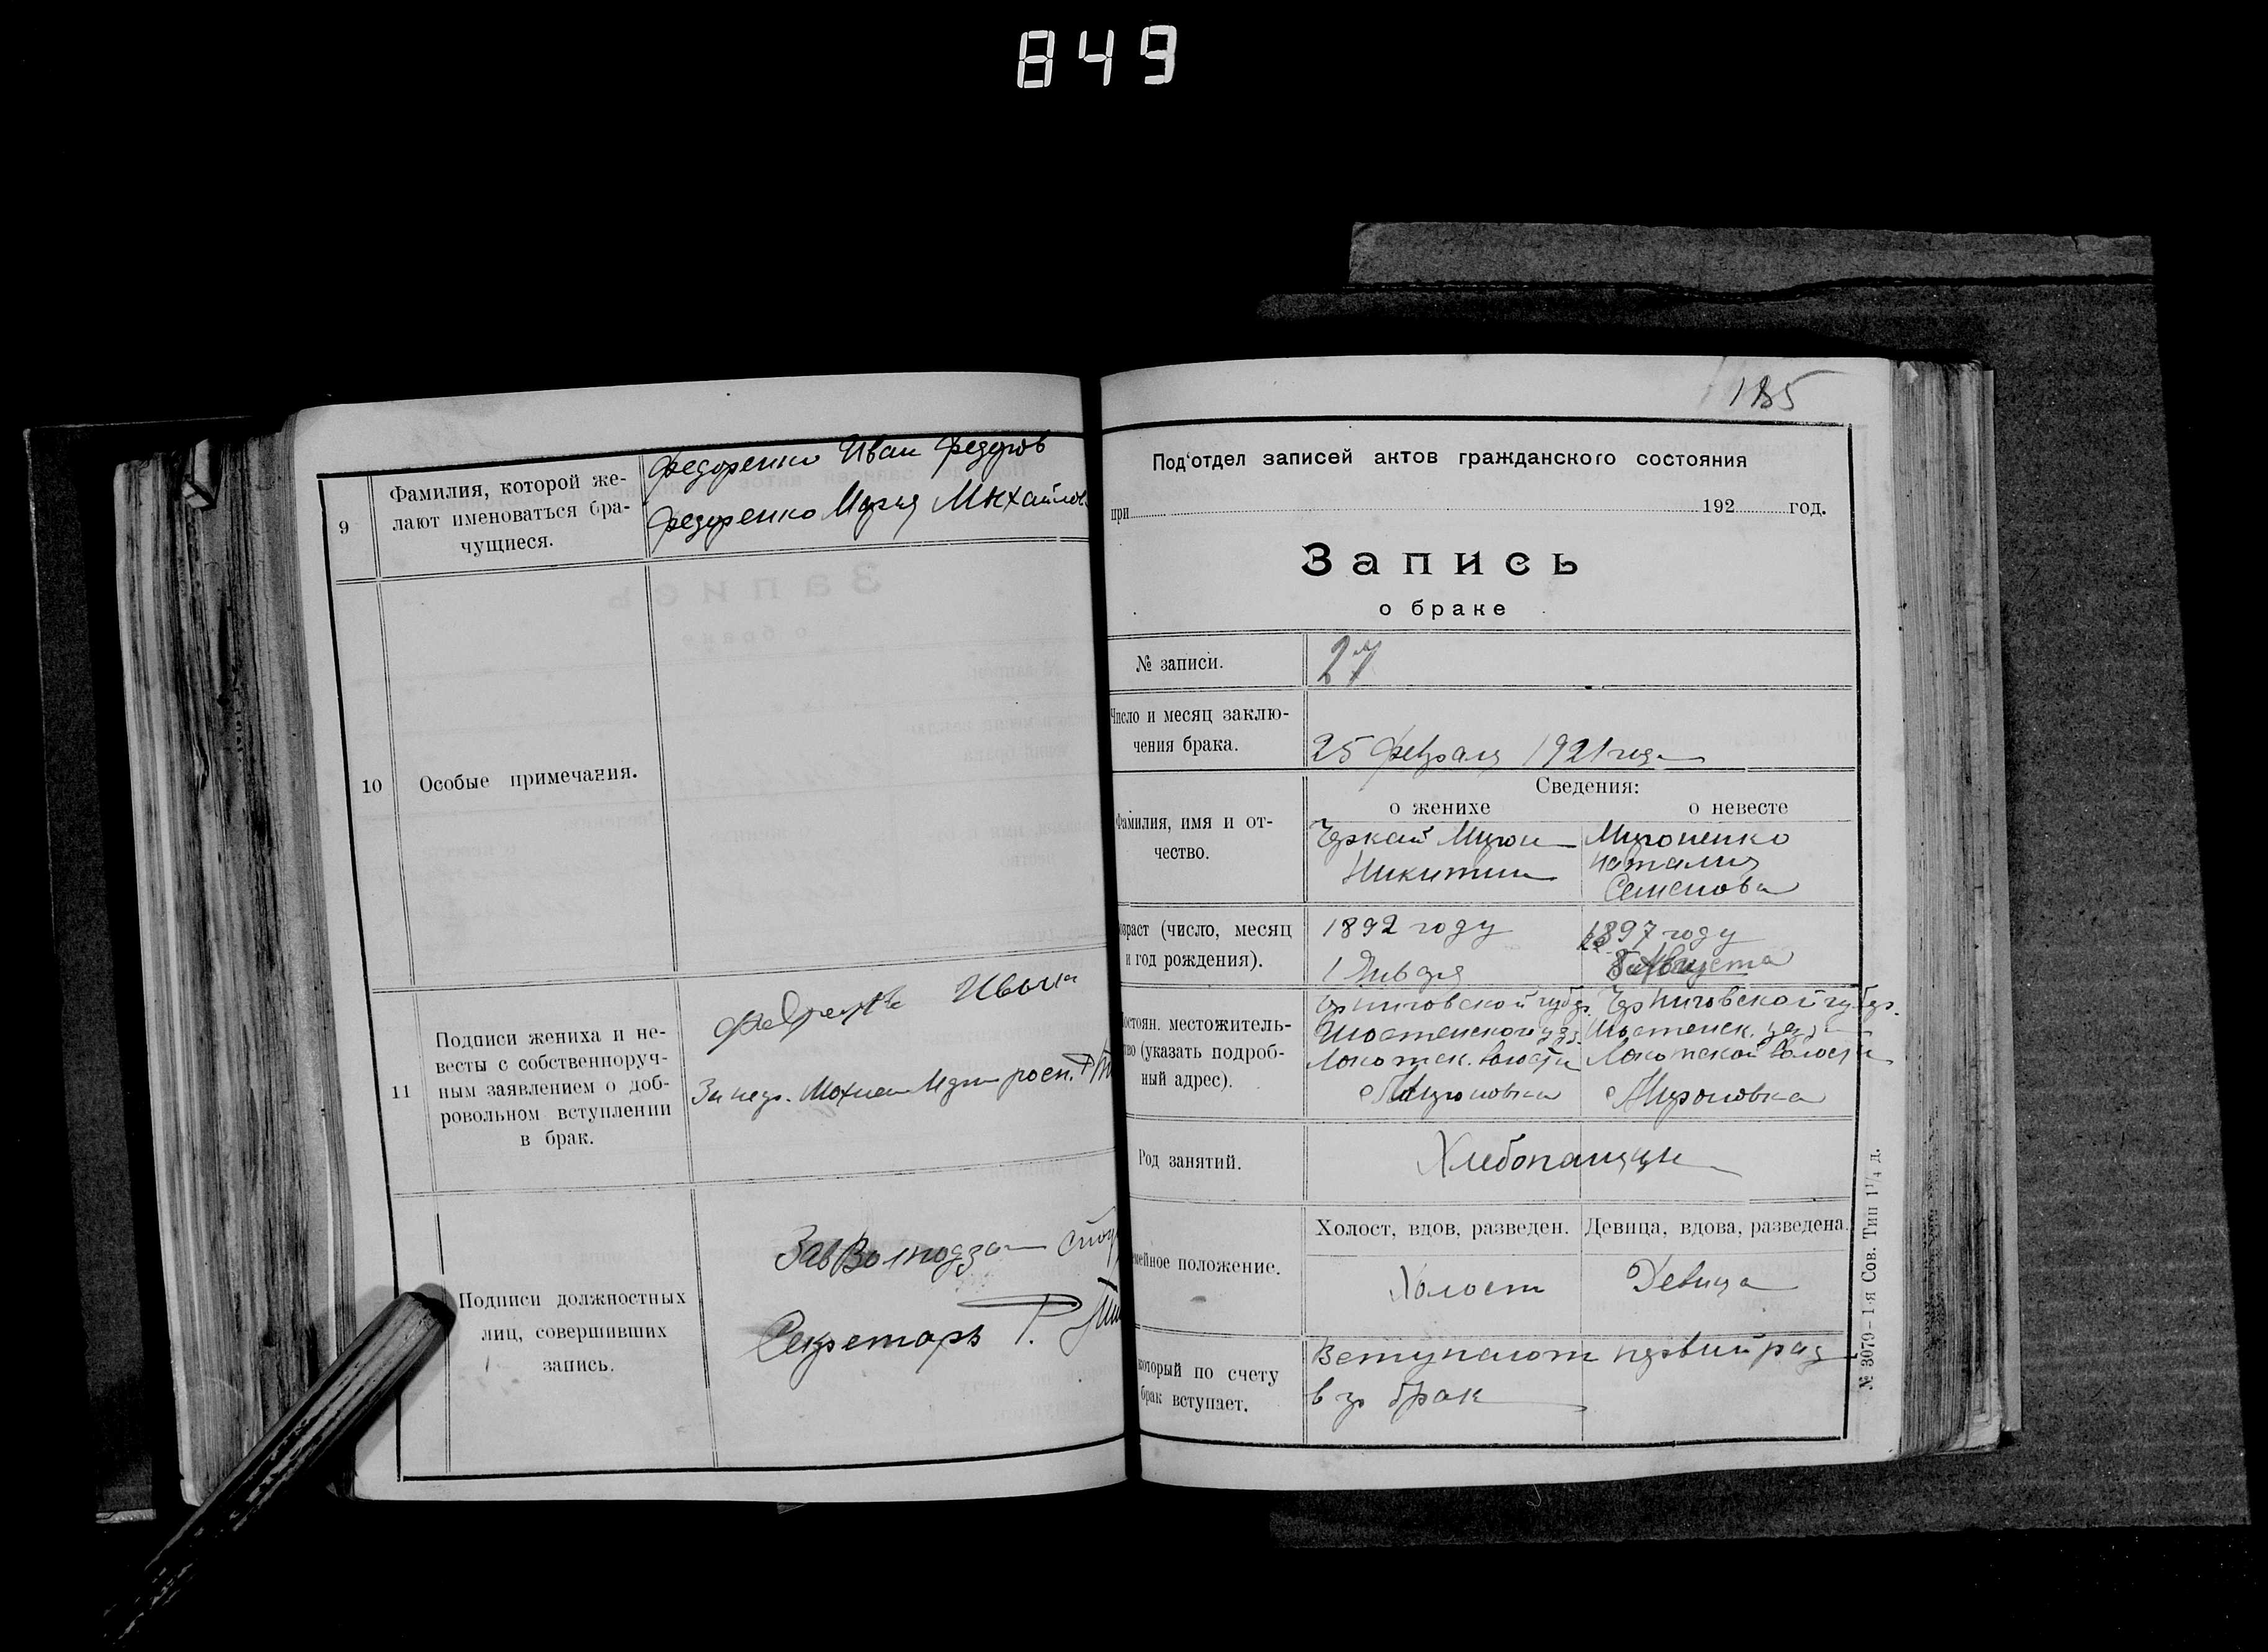 849
9
Фамилия, которой же-
лают именоваться бра-
чущиеся.
Федоренко Иван Федоров
Федоренко Мария Михайлов
10
Особые примечания.
11
Подписи жениха и не-
весты с собственноруч-
ным заявлением о доб-
ровольном вступлении
в брак.
Иван
За негр.
Подписи должностных
лиц, совершивших
запись.
Секретарь Г.
185
Под'отдел записей актов гражданского состояния
при 192 год.
Запись
о браке
№ записи.
27
Число и месяц заклю-
чения брака.
25 февраля 1921 года
Сведения:
о женихе
о невесте
Фамилия, имя и от-
чество.
Черкай Мирон
Никитин
Мироненко
Наталия
Семенова
зраст (число, месяц
и год рождения).
1892 году
1 Января
1897 году
Августа
остоян. местожитель-
тво (указать подроб-
ный адрес).
Черниговской губер.
Шостенской уез.
Локотск. волости
с Мироновка
Черниговской губер.
Шостенск. уез.
Локотской волости
с Мироновка
Род занятий.
Хлебопашцы
мейное положение.
Холост, вдов, разведен.
Девица, вдова, разведена.
Холост
Девица
который по счету
брак вступает.
Вступают первый раз
в брак
№ 3079—1-я Сов. Тип 1¼ д.